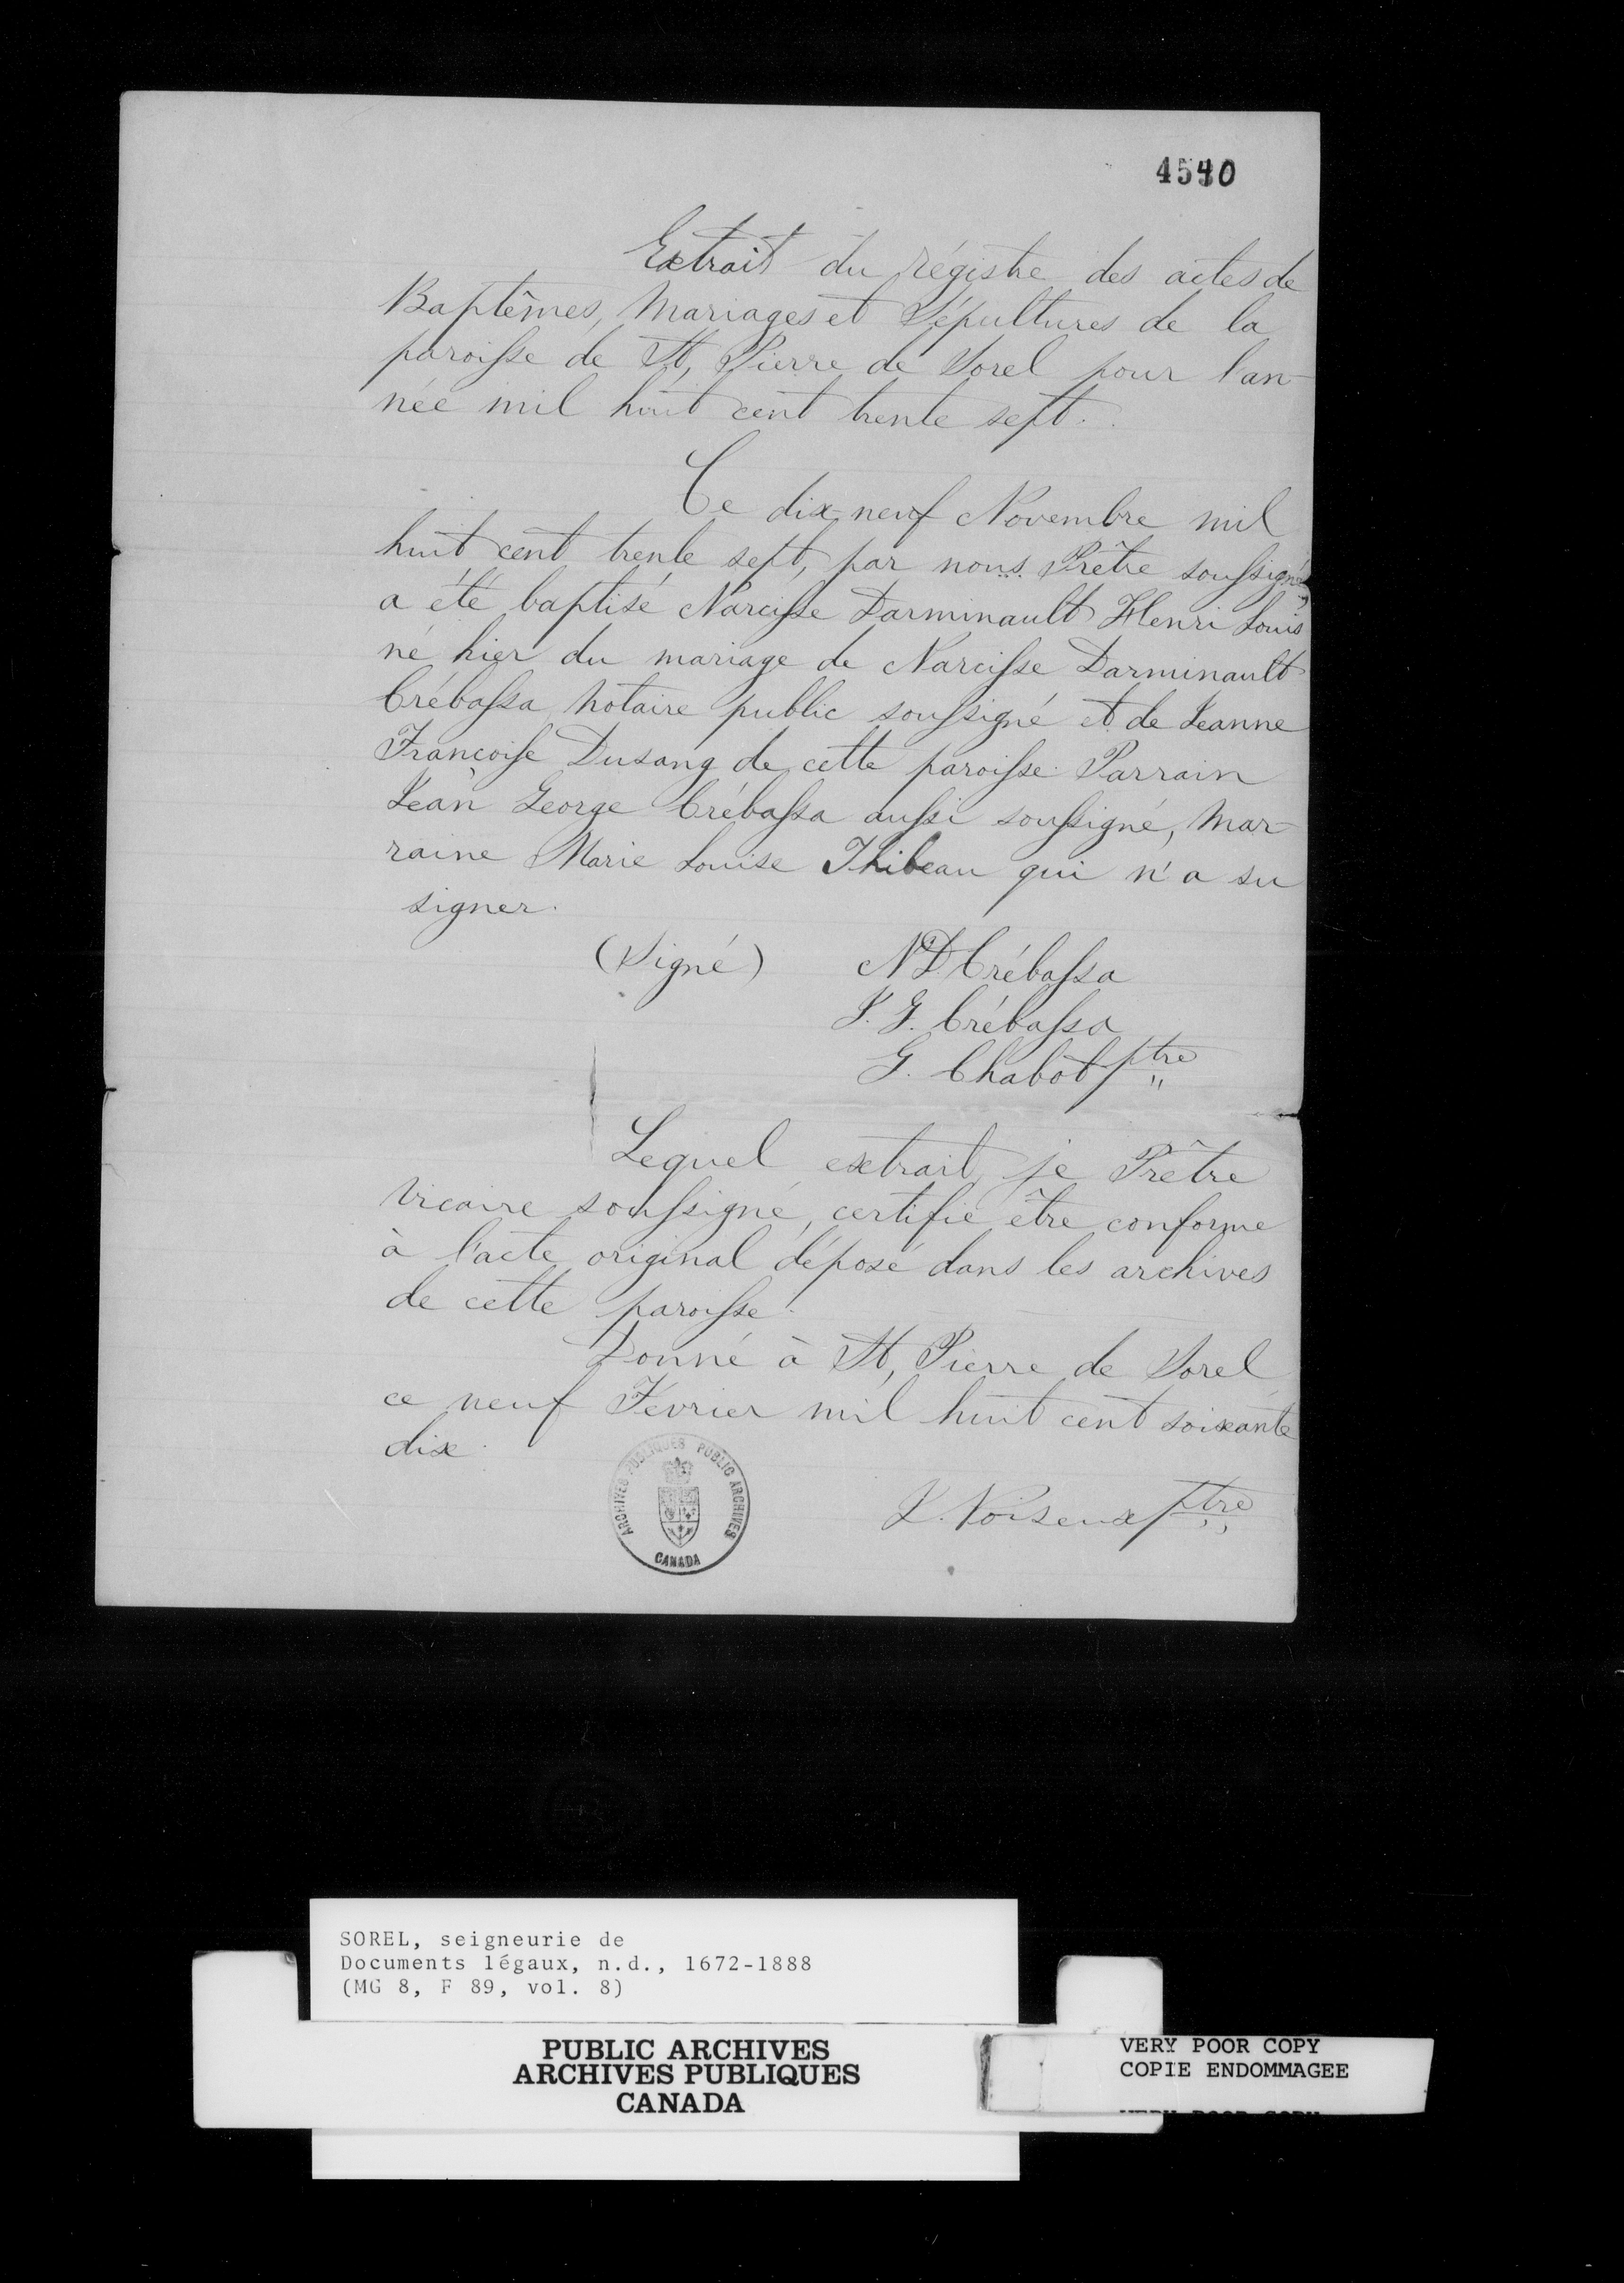 4540
Extrait du régistre des actes de
Baptêmes, Mariages et Sépultures de la
paroisse de St, Pierre de Sorel pour l'an-
née mil huit cent trente sept.
Ce dix-neuf Novembre mil
huit cent trente sept, par nous Prêtre soussigné,
a été baptisé Narcisse Darminault Henri Louis
né hier du mariage de Narcisse Darminault
Crébassa notaire public soussigné et de Jeanne
Françoise Dusang de cette paroisse. Parrain
Jean George Crébassa aussi soussigné, Mar-
raine Marie Louise Thibeau qui n'a su
signer.
(Signé) N D Crébassa
J. G. Crébassa
G. Chabot ptre
Lequel extrait, je Prêtre
Vicaire soussigné, certifie être conforme
à l'acte original déposé dans les archives
de cette paroisse.
Donné à St, Pierre de Sorel
ce neuf Fevrier mil huit cent soixante
dix.
ARCHIVES PUBLIQUES PUBLIC ARCHIVES
CANADA
Ptre
SOREL, seigneurie de
Documents légaux, n.d., 1672-1888
(MG 8, F 89, vol. 8)
PUBLIC ARCHIVES
ARCHIVES PUBLIQUES
CANADA
VERY POOR COPY
COPIE ENDOMMAGEE
VERY POOR COPY